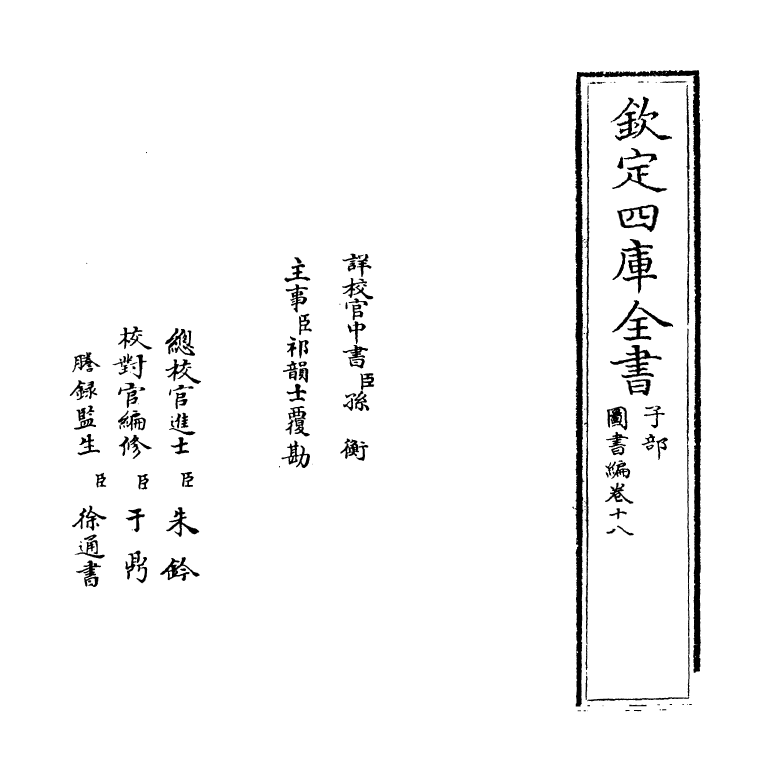 欽定四庫全書
子部
圖書編卷十八
詳校官中書臣孫衡
主事臣祁韻士覆勘
總校官進士臣朱鈐
校對官編修臣于鼎
謄録監生臣徐通書